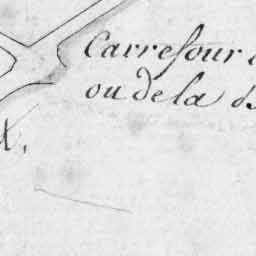 Carrefour
ou de la
X.